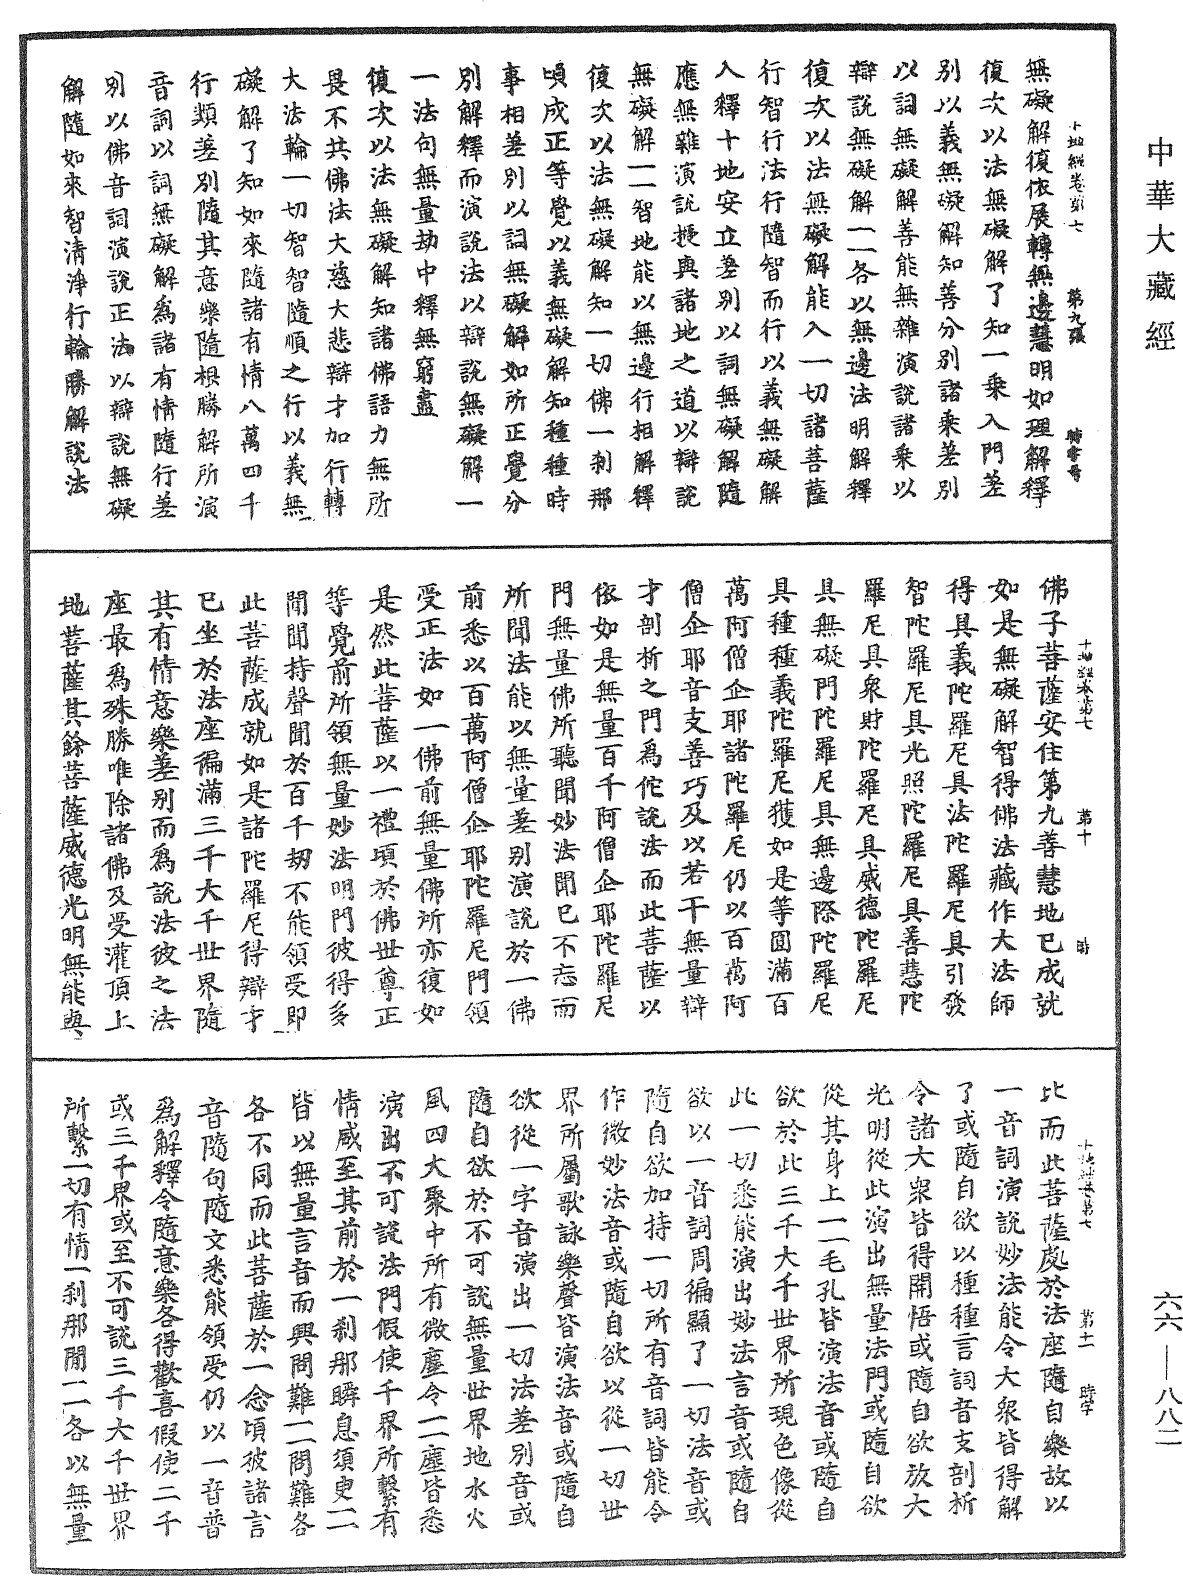 中華大藏經
六六—八八二
無礙解復依展轉無邊慧明如理解釋
十地經卷第七 第九張 時字号
復次以法無礙解了知一乘入門差
別以義無礙解知善分別諸乘差別
以詞無礙解善能無雜演說諸乘以
辯說無礙解一一各以無邊法明解釋
復次以法無礙解能入一切諸菩薩
行智行法行隨智而行以義無礙解
入釋十地安立差別以詞無礙解隨
應無雜演說授與諸地之道以辯說
無礙解一一智地能以無邊行相解釋
復次以法無礙解知一切佛一剎那
頃成正等覺以義無礙解知種種時
事相差別以詞無礙解如所正覺分
別解釋而演說法以辯說無礙解一
一法句無量劫中釋無窮盡
復次以法無礙解知諸佛語力無所
畏不共佛法大慈大悲辯才加行轉
大法輪一切智智隨順之行以義無
礙解了知如來隨諸有情八萬四千
行類差別隨其意樂隨根勝解所演
音詞以詞無礙解為諸有情隨行差
別以佛音詞演說正法以辯說無礙
解隨如來智清淨行輪勝解說法
十地經卷第七 第十 時
佛子菩薩安住第九善慧地已成就
如是無礙解智得佛法藏作大法師
得具義陀羅尼具法陀羅尼具引發
智陀羅尼具光照陀羅尼具善慧陀
羅尼具衆財陀羅尼具威德陀羅尼
具無礙門陀羅尼具無邊際陀羅尼
具種種義陀羅尼獲如是等圓滿百
萬阿僧企耶諸陀羅尼仍以百萬阿
僧企耶音支善巧及以若干無量辯
才剖析之門為佗說法而此菩薩以
依如是無量百千阿僧企耶陀羅尼
門無量佛所聽聞妙法聞已不忘而
所聞法能以無量差別演說於一佛
前悉以百萬阿僧企耶陀羅尼門領
受正法如一佛前無量佛所亦復如
是然此菩薩以一禮頃於佛世尊正
等覺前所領無量妙法明門彼得多
聞聞持聲聞於百千劫不能領受即
此菩薩成就如是諸陀羅尼得辯才
已坐於法座徧滿三千大千世界隨
其有情意樂差別而為說法彼之法
座最為殊勝唯除諸佛及受灌頂上
地菩薩其餘菩薩威德光明無能與
十地經卷第七 第十一 時字
比而此菩薩處於法座隨自樂故以
一音詞演說妙法能令大衆皆得解
了或隨自欲以種種言詞音支剖析
令諸大衆皆得開悟或隨自欲放大
光明從此演出無量法門或隨自欲
從其身上一一毛孔皆演法音或隨自
欲於此三千大千世界所現色像從
此一切悉能演出妙法言音或隨自
欲以一音詞周徧顯了一切法音或
隨自欲加持一切所有音詞皆能令
作微妙法音或隨自欲以從一切世
界所屬歌詠樂聲皆演法音或隨自
欲從一字音演出一切法差別音或
隨自欲於不可說無量世界地水火
風四大聚中所有微塵令一一塵皆悉
演出不可說法門假使千界所繫有
情咸至其前於一剎那瞬息須臾一一
皆以無量言音而興問難一一問難各
各不同而此菩薩於一念頃彼諸言
音隨句隨文悉能領受仍以一音普
為解釋令隨意樂各得歡喜假使二千
或三千界或至不可說三千大千世界
所繫一切有情一剎那間一一各以無量